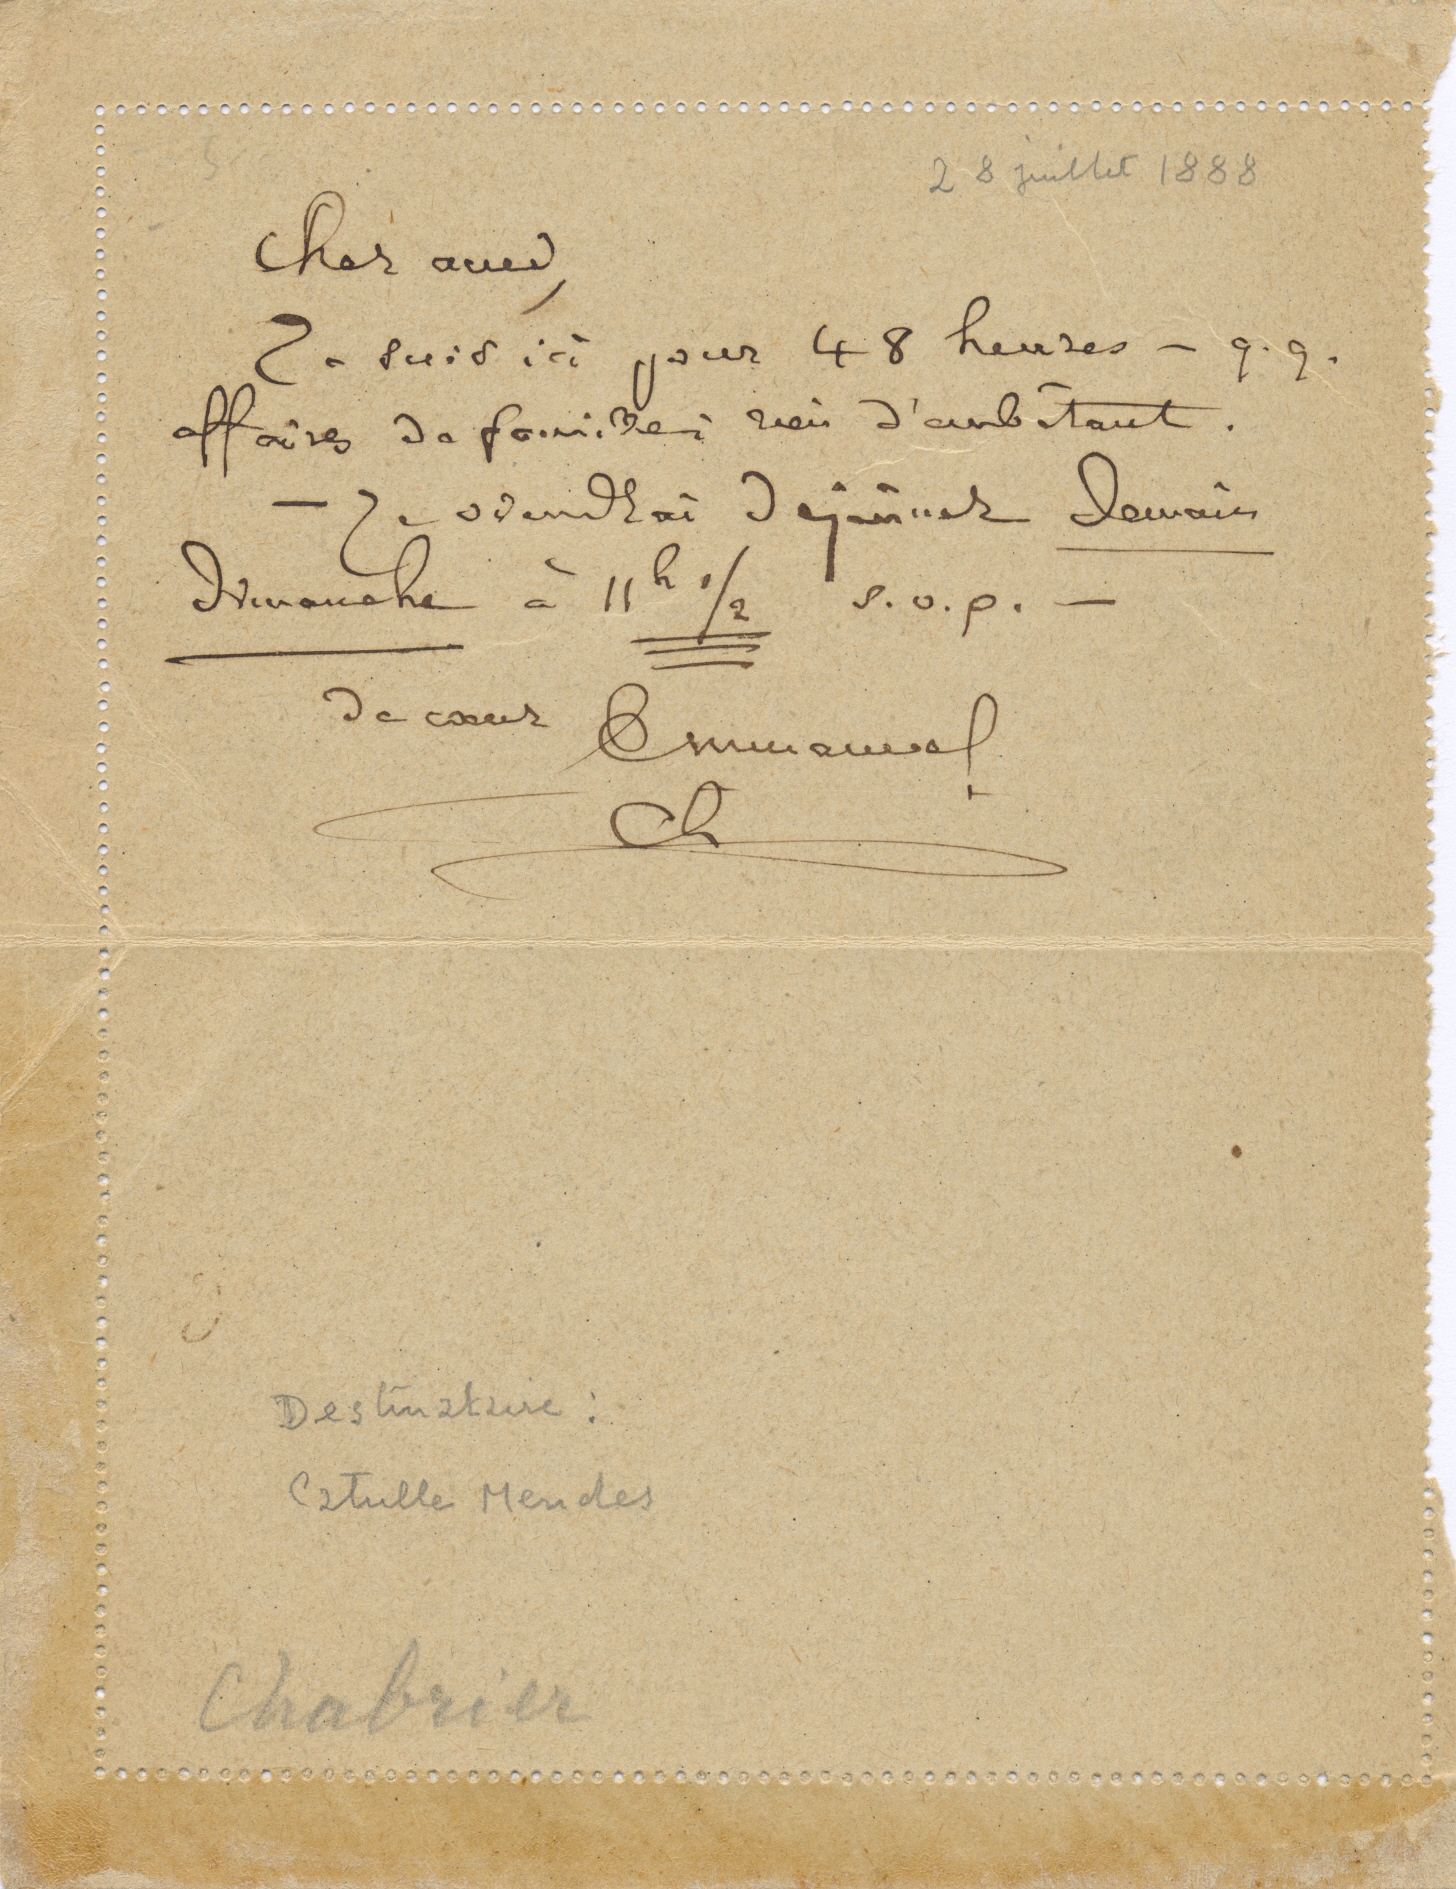 28 juillet 1888
Cher ami,
Je suis ici pour 48 heures – q.q.
affaires de famille ; rien d'embêtant.
– Je viendrai déjeûner demain
Dimanche à 11h 1/2 s.v.p. –
de cœur Emmanuel
Ch
Destinataire :
Catulle Mendes
Chabrier